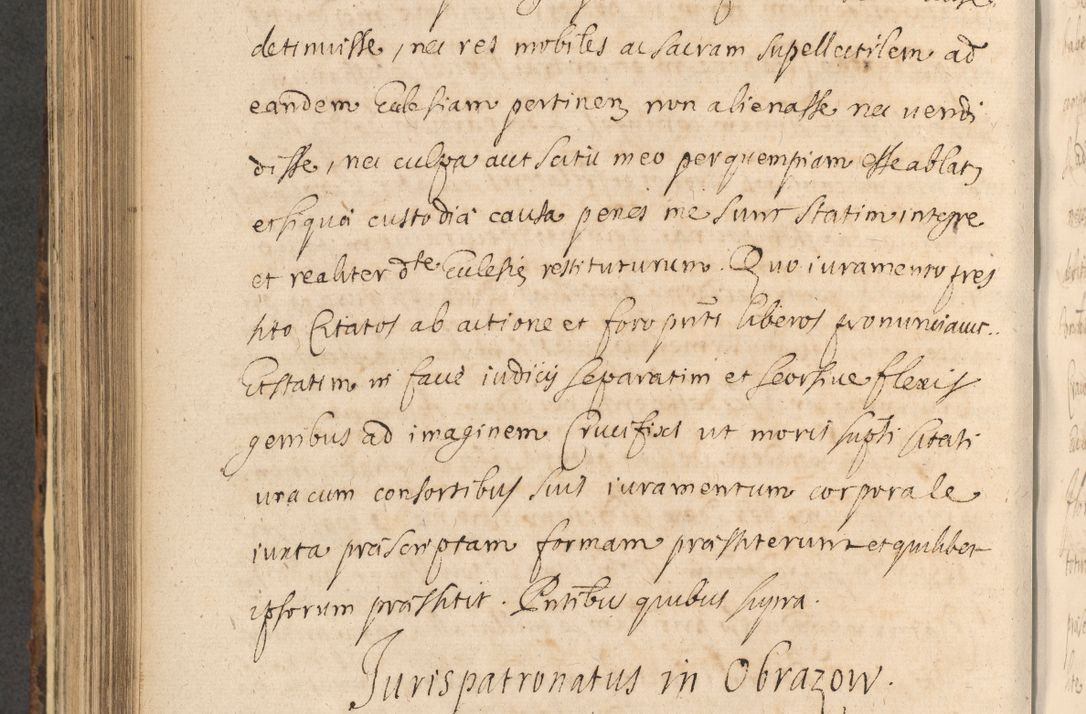 detinuisse, nec res mobiles ac sacram supellectilem ad
eandem Ecclesiam pertinen non alienasse nec vendi
disse, nec culpa aut scitu meo per quempiam esse ablat
et si qua custodiæ causa penes me sunt statim integre
et realiter dte Ecclesię restituturum. Quo iuramento pręs
tito Citatos ab actione et foro pnti liberos pronunciavit..
Et statim in facie iudicij separatim et seorsive flexis
genibus ad imaginem Crucifixi ut moris supti citati
una cum consortibus suis iuramentum corporale
iuxta præscriptam formam præstiterunt et quilibet
ipsorum præstitit. Pntibus quibus supra.
Jurispatronatus in Obrazow.